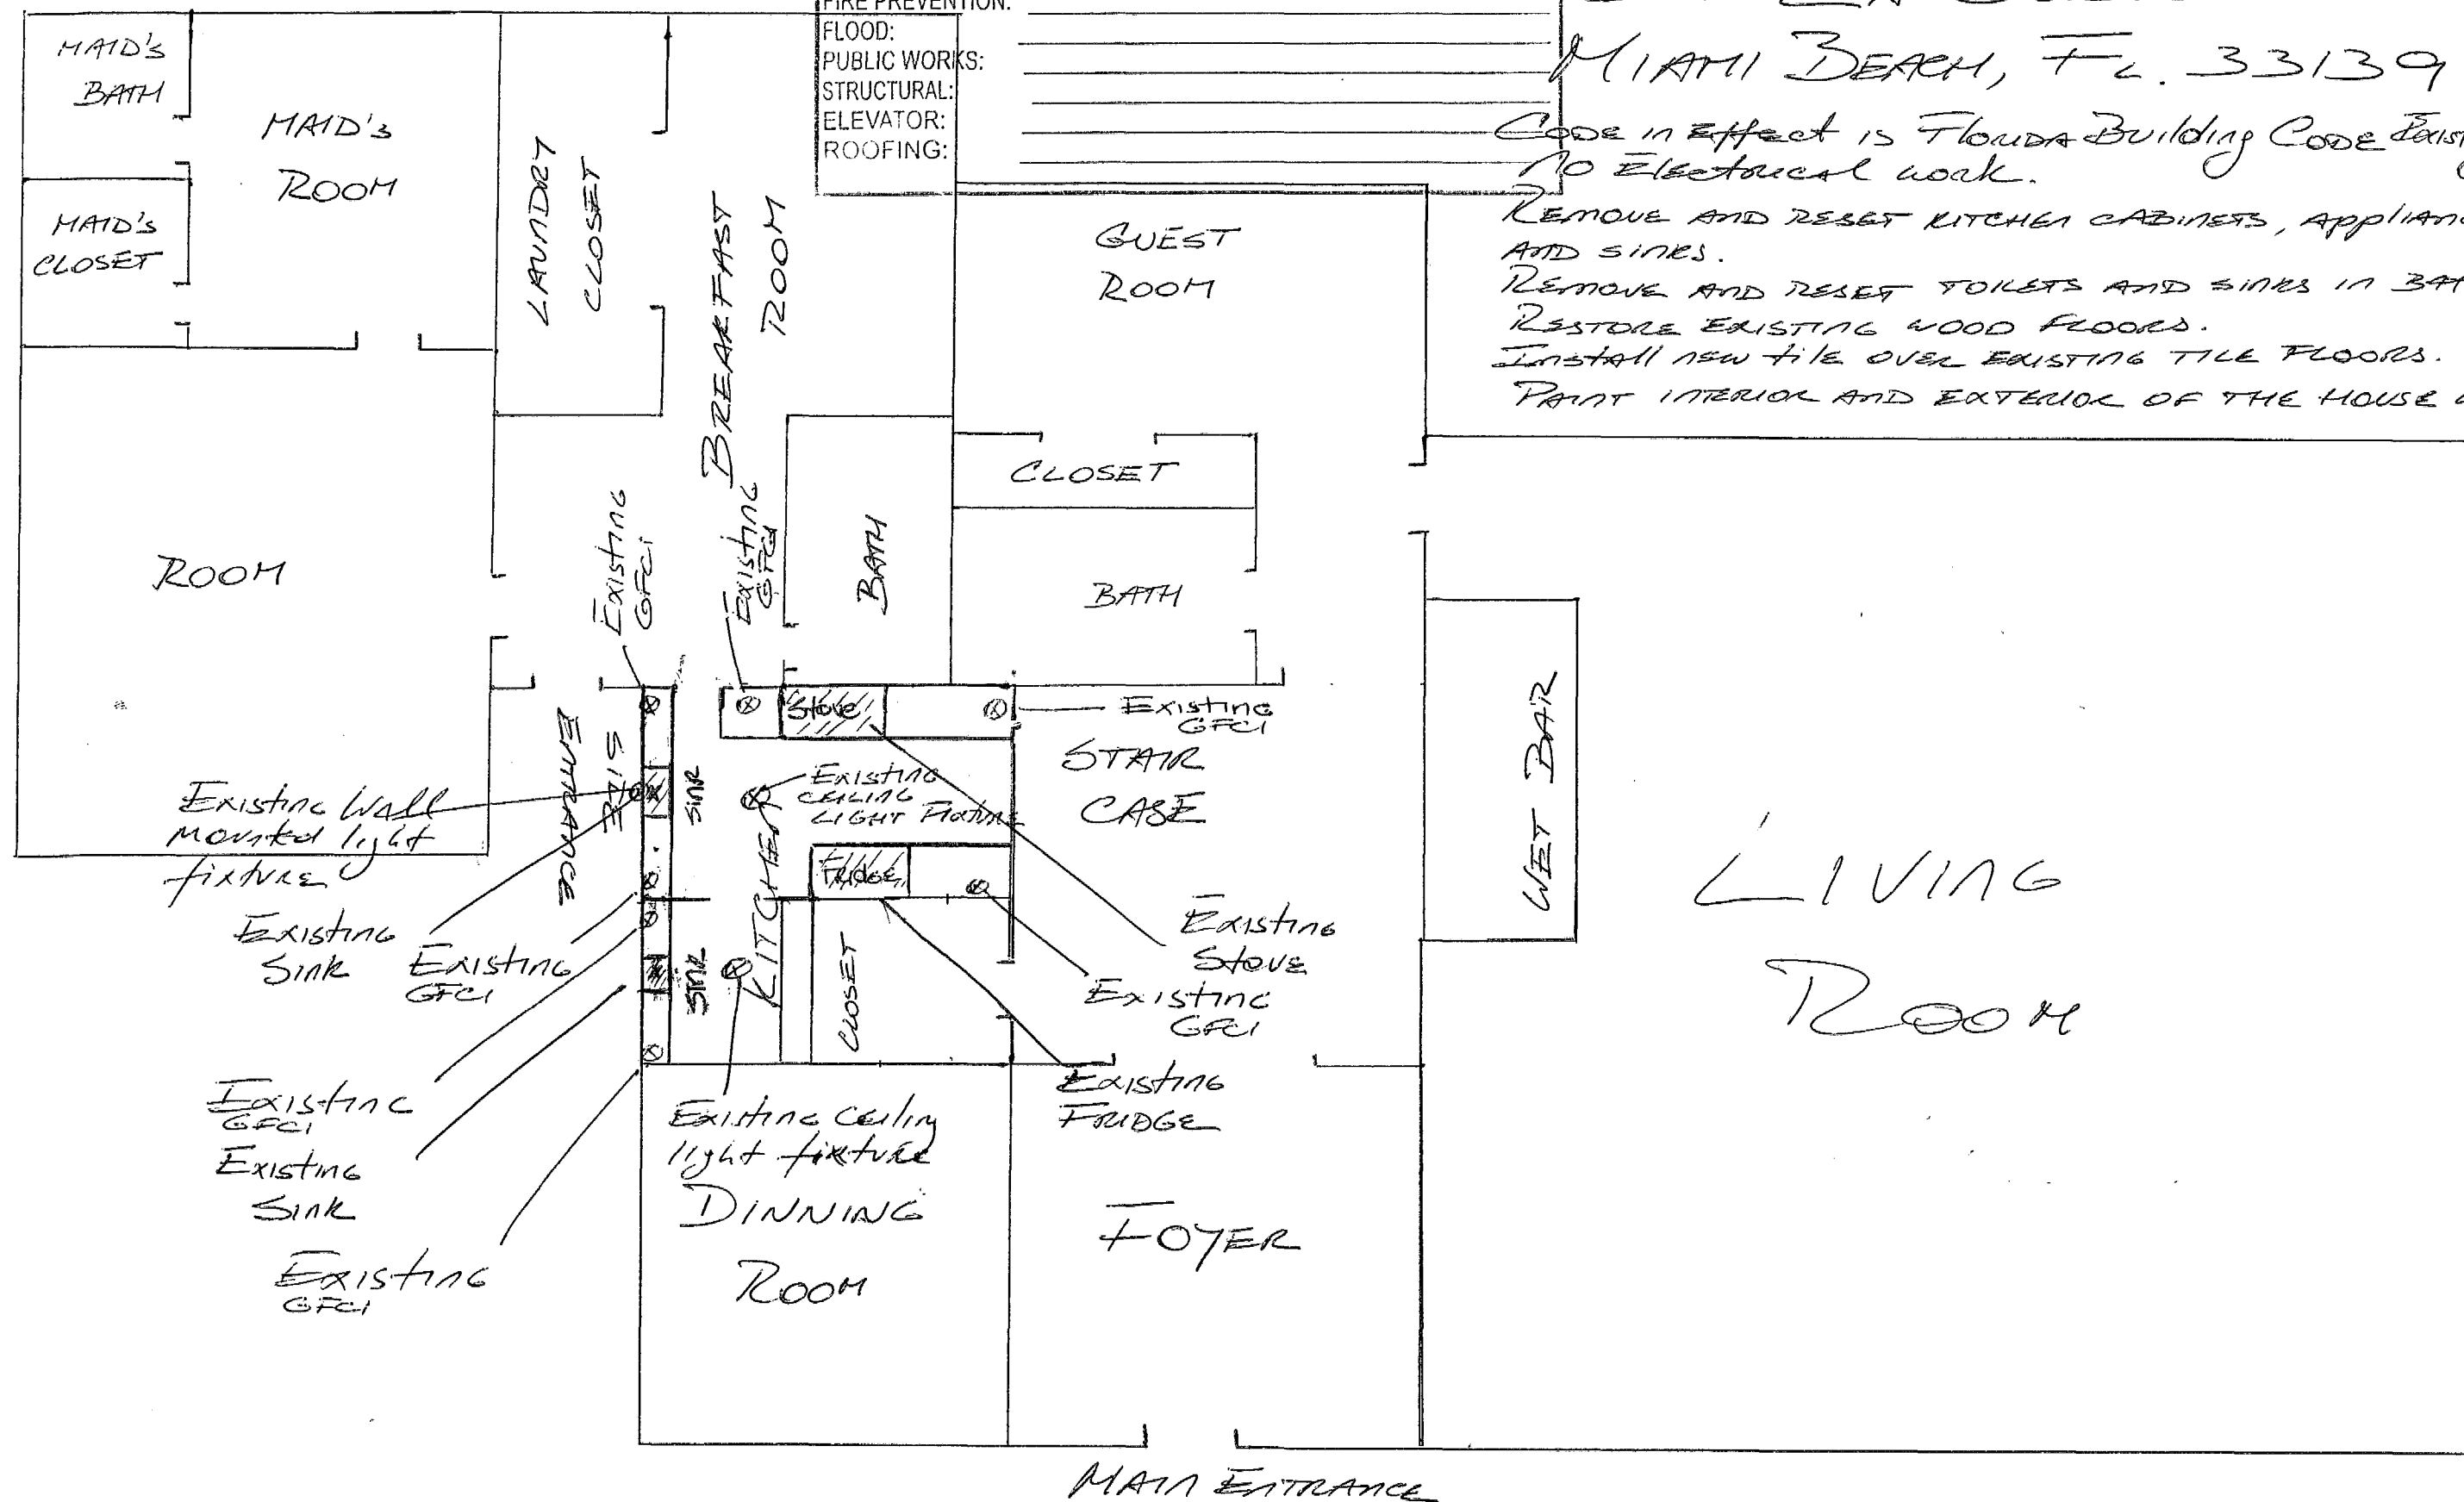 FIRE PREVENTION:
FLOOD:
PUBLIC WORKS:
STRUCTURAL:
ELEVATOR:
ROOFING:
MIAMI BEACH, FL. 33139
CODE in Effect is FLORIDA Building CODE
NO Electrical work.
REMOVE AND RESET KITCHEN CABINETS,
AND SINKS.
REMOVE AND RESET TOILETS AND SINKS IN
RESTORE EXISTING WOOD FLOORS.
Install new tile OVER EXISTING TILE FLOORS.
PAINT INTERIOR AND EXTERIOR OF THE HOUSE
MAID's
BATH
MAID's
ROOM
MAID's
CLOSET
LAUNDRY
CLOSET
BREAKFAST
ROOM
GUEST
ROOM
CLOSET
BATH
BATH
ROOM
Existing
GFCI
Existing
GFCI
Stove
Existing
GFCI
SIDE
ENTRANCE
SINK
Existing
CEILING
LIGHT Fixture
STAIR
CASE
WET BAR
LIVING
ROOM
Existing Wall
mounted light
fixture
KITCHEN
FRIDGE
Existing
Sink
Existing
GFCI
SINK
CLOSET
Existing
Stove
Existing
GFCI
Existing
FRIDGE
Existing
GFCI
Existing
Sink
Existing
GFCI
Existing Ceiling
light fixture
DINNING
ROOM
FOYER
MAIN ENTRANCE